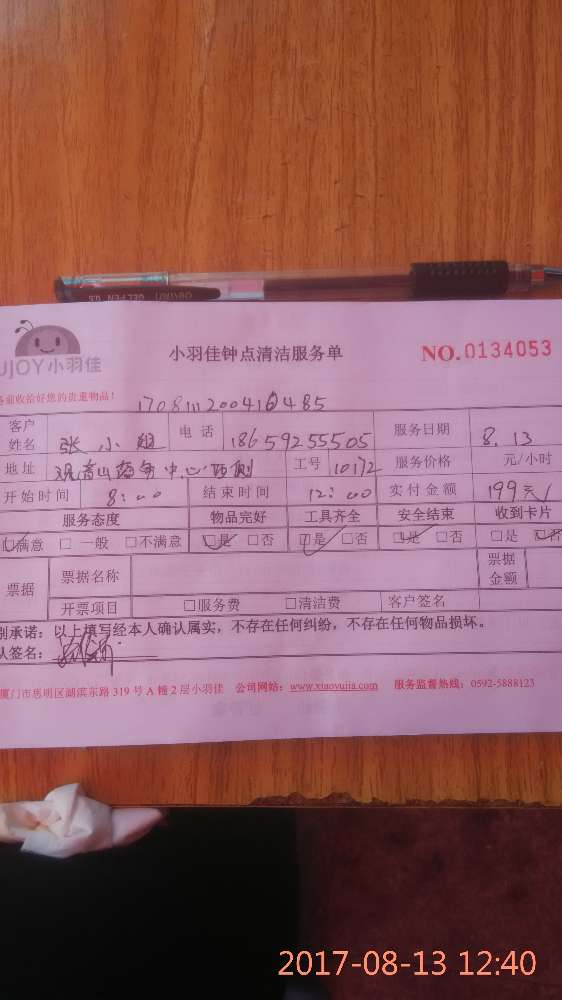 GELPEN 0.5
UJOY小羽佳
小羽佳钟点清洁服务单
NO.0134053
业收拾好您的贵重物品!
客户姓名 张小姐 电话 18659255505 服务日期 8.13
地址 观音山 中心西侧 工号 10172 服务价格 元/小时
开始时间 8:00 结束时间 12:00 实付金额 199元/
服务态度 物品完好 工具齐全 安全结束 收到卡片
☑满意 □一般 □不满意 ☑是 □否 ☑是 □否 ☑是 □否 □是 ☑否
票据 票据名称 票据金额
开票项目 □服务费 □清洁费 客户签名
别承诺:以上填写经本人确认属实,不存在任何纠纷,不存在任何物品损坏。
认签名:
厦门市思明区湖滨东路319号A幢2层小羽佳 公司网站:www.xiaoyujia.com 服务监督热线:0592-5888123
2017-08-13 12:40